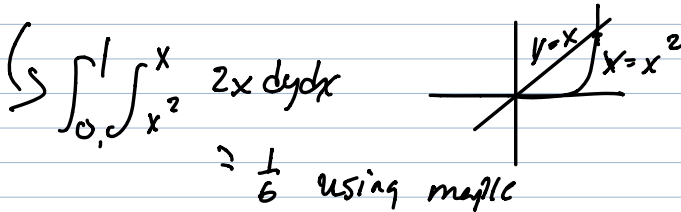 ∫₀¹ ∫ₓ²ˣ 2x dydx
y=x
x=x²
= 1/6 using maple